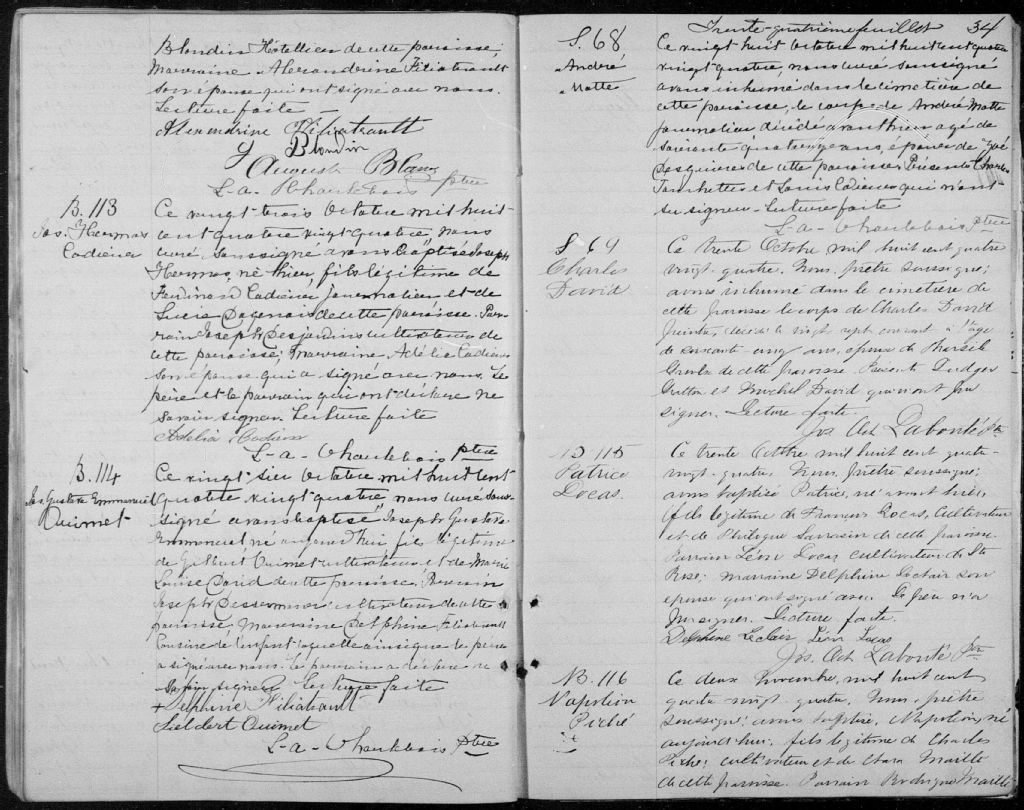 Blondin Hôtellier de cette paroisse,
Marraine Alexandrine Filiatrault
son épouse qui ont signé avec nous.
Lecture faite
Alexandrine Filiatrault
Blondin
August Blondin
L-a- Charlebois ptre
B. 113
Jos. Hermas
Cadieux
Ce vingt-trois Octobre mil huit-
cent quatre vingt quatre, nous
curé soussigné avons baptisé Joseph
Hermas, né hier, fils légitime de
Ferdinand Cadieux, journalier et de
Lucie Dagenais de cette paroisse. Par-
rain Joseph Desjardins cultivateur de
cette paroisse, Marraine Adélia Cadieux
son épouse qui a signé avec nous. Le
père et le parrain qui ont déclaré ne
savoir signer. Lecture faite
Adelia Cadieux
L-a- Charlebois ptre
B. 114
Jos. Gustave Emmanuel
Ouimet
Ce vingt-six Octobre mil huit cent
quatre vingt quatre nous curé sous-
signé avons baptisé Joseph Gustave
Emmanuel né aujourd'hui fils légitime
de Gilbert Ouimet cultivateur et de Marie
Louise David de cette paroisse; Parrain
Joseph cultivateur de cette
paroisse, Marraine Delphine Filiatrault
Cousine de l'enfant laquelle ainsi que le père
a signé avec nous. Le parrain a déclaré ne
savoir signer. Lecture faite
+ Delphine Filiatrault
Gilbert Ouimet
L-a- Charlebois ptre
Trente-quatrième feuillet 34
S. 68
André
Matte
Ce vingt huit Octobre mil huit cent quatre
vingt quatre, nous curé soussigné
avons inhumé dans le cimetière de
cette paroisse, le corps de André Matte
journalier décédé avant hier agé de
soixante quatre ans, époux de Zoé
Desguires de cette paroisse, Présents Charles
et Louis Cadieux qui n'ont
su signer. Lecture faite
L-a- Charlebois ptre
S. 69
Charles
David
Ce trente Octobre mil huit cent quatre
vingt-quatre, Nous, prêtre soussigné;
avons inhumé dans le cimetière de
cette paroisse le corps de Charles David
décédé le vingt sept courant à l'âge
de soixante cinq ans, époux de
de cette paroisse. Présents Ludger
et Michel David qui n'ont pu
signer. Lecture faite.
Jos. Oct Labonté Ptre
B 115
Patrice
Locas.
Ce trente Octobre mil huit cent quatre-
vingt-quatre, Nous, prêtre soussigné;
avons baptisé Patrice, né avant hier,
fils légitime de François Locas, Cultivateur
et de Philogue Sarrasin de cette paroisse.
Parrain Léon Locas cultivateur de Ste
Rose; marraine Delphine Leclair son
épouse qui ont signé avec. Le père n'a
pu signer. Lecture faite.
Delphine Leclair Léon Locas
Jos. Oct Labonté Ptre
B. 116
Napoléon
Piché
Ce deux Novembre, mil huit cent
quatre vingt-quatre, Nous, prêtre
soussigné; avons baptisé, Napoléon, né
aujourd'hui, fils légitime de Charles
Piché; cultivateur et de Clara Maillé
de cette paroisse. Parrain Rodrigue Maillé